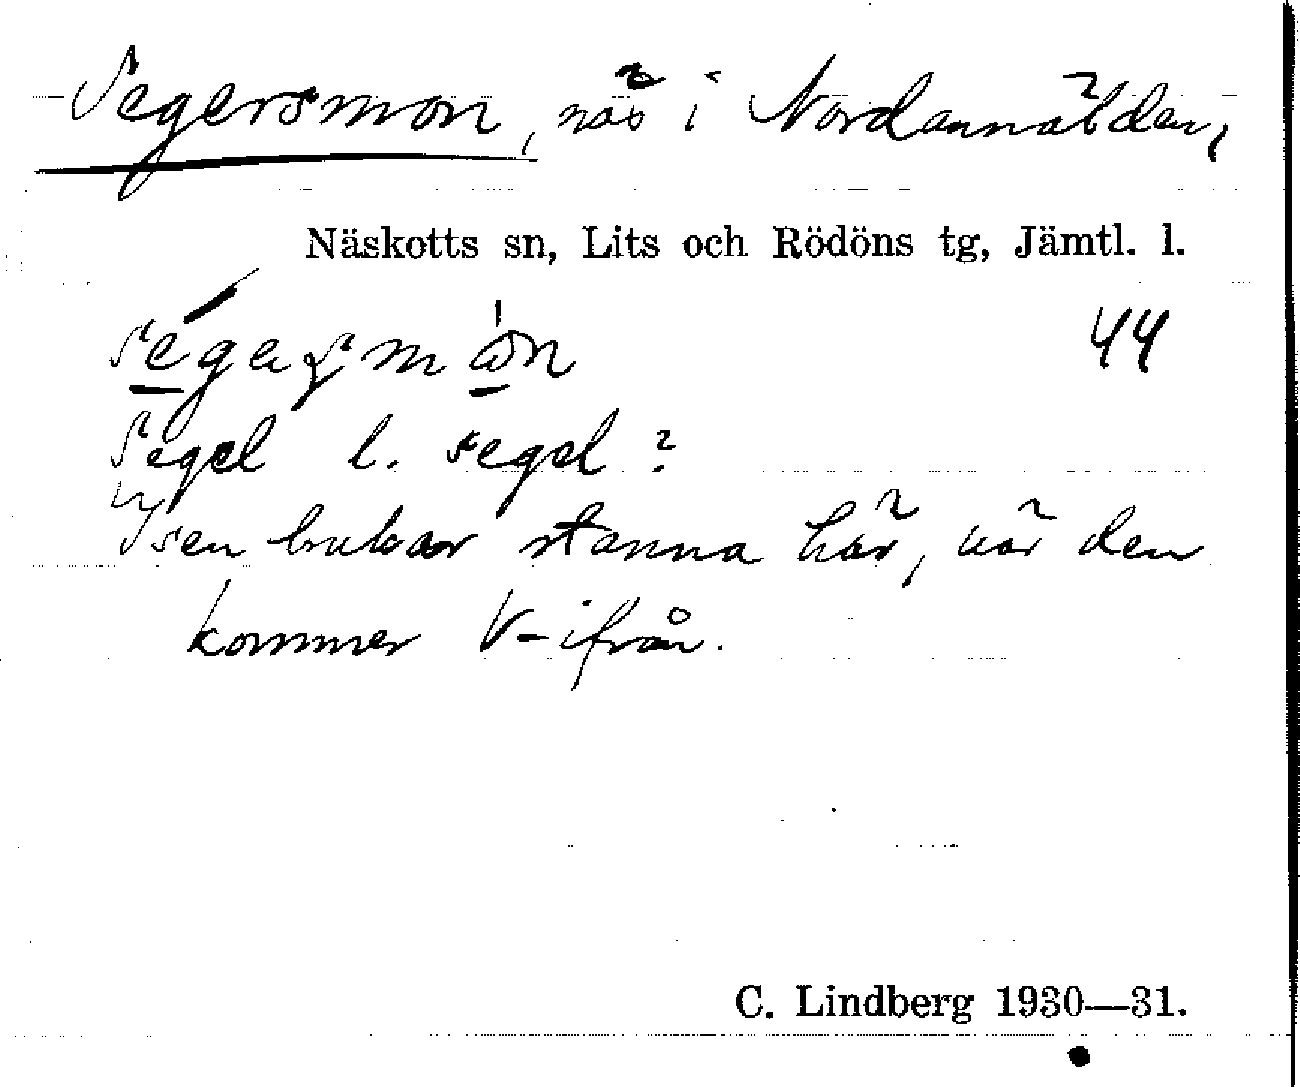 Segersmon, näs i Nordannälden,
Näskotts sn, Lits och Rödöns tg, Jämtl. l.
segaʂmòn 44
Segel l. segel?
Isen brukar stanna här, när den
kommer V-ifrån.
C. Lindberg 1930—31.